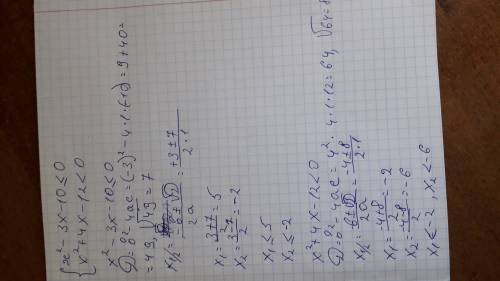 { x² - 3x - 10 ≤ 0
{ x² + 4x - 12 < 0
x² - 3x - 10 ≤ 0
D = b² 4ac = (-3)² - 4·1·(-10) = 9 + 40 =
= 49, √49 = 7
x1/2 = -b ± √D / 2a = +3 ± 7 / 2·1
x₁ = 3+7 / 2 = 5
x₂ = 3-7 / 2 = -2
x₁ ≤ 5
x₂ ≤ -2
x² + 4x - 12 < 0
D = b² 4ac = 4² · 4·1·12 = 64, √64 = 8
x1/2 = b ± √D / 2a = -4 ± 8 / 2·1
x₁ = 4+8 / 2 = -2
x₂ = -4-8 / 2 = -6
x₁ < -2, x₂ < -6